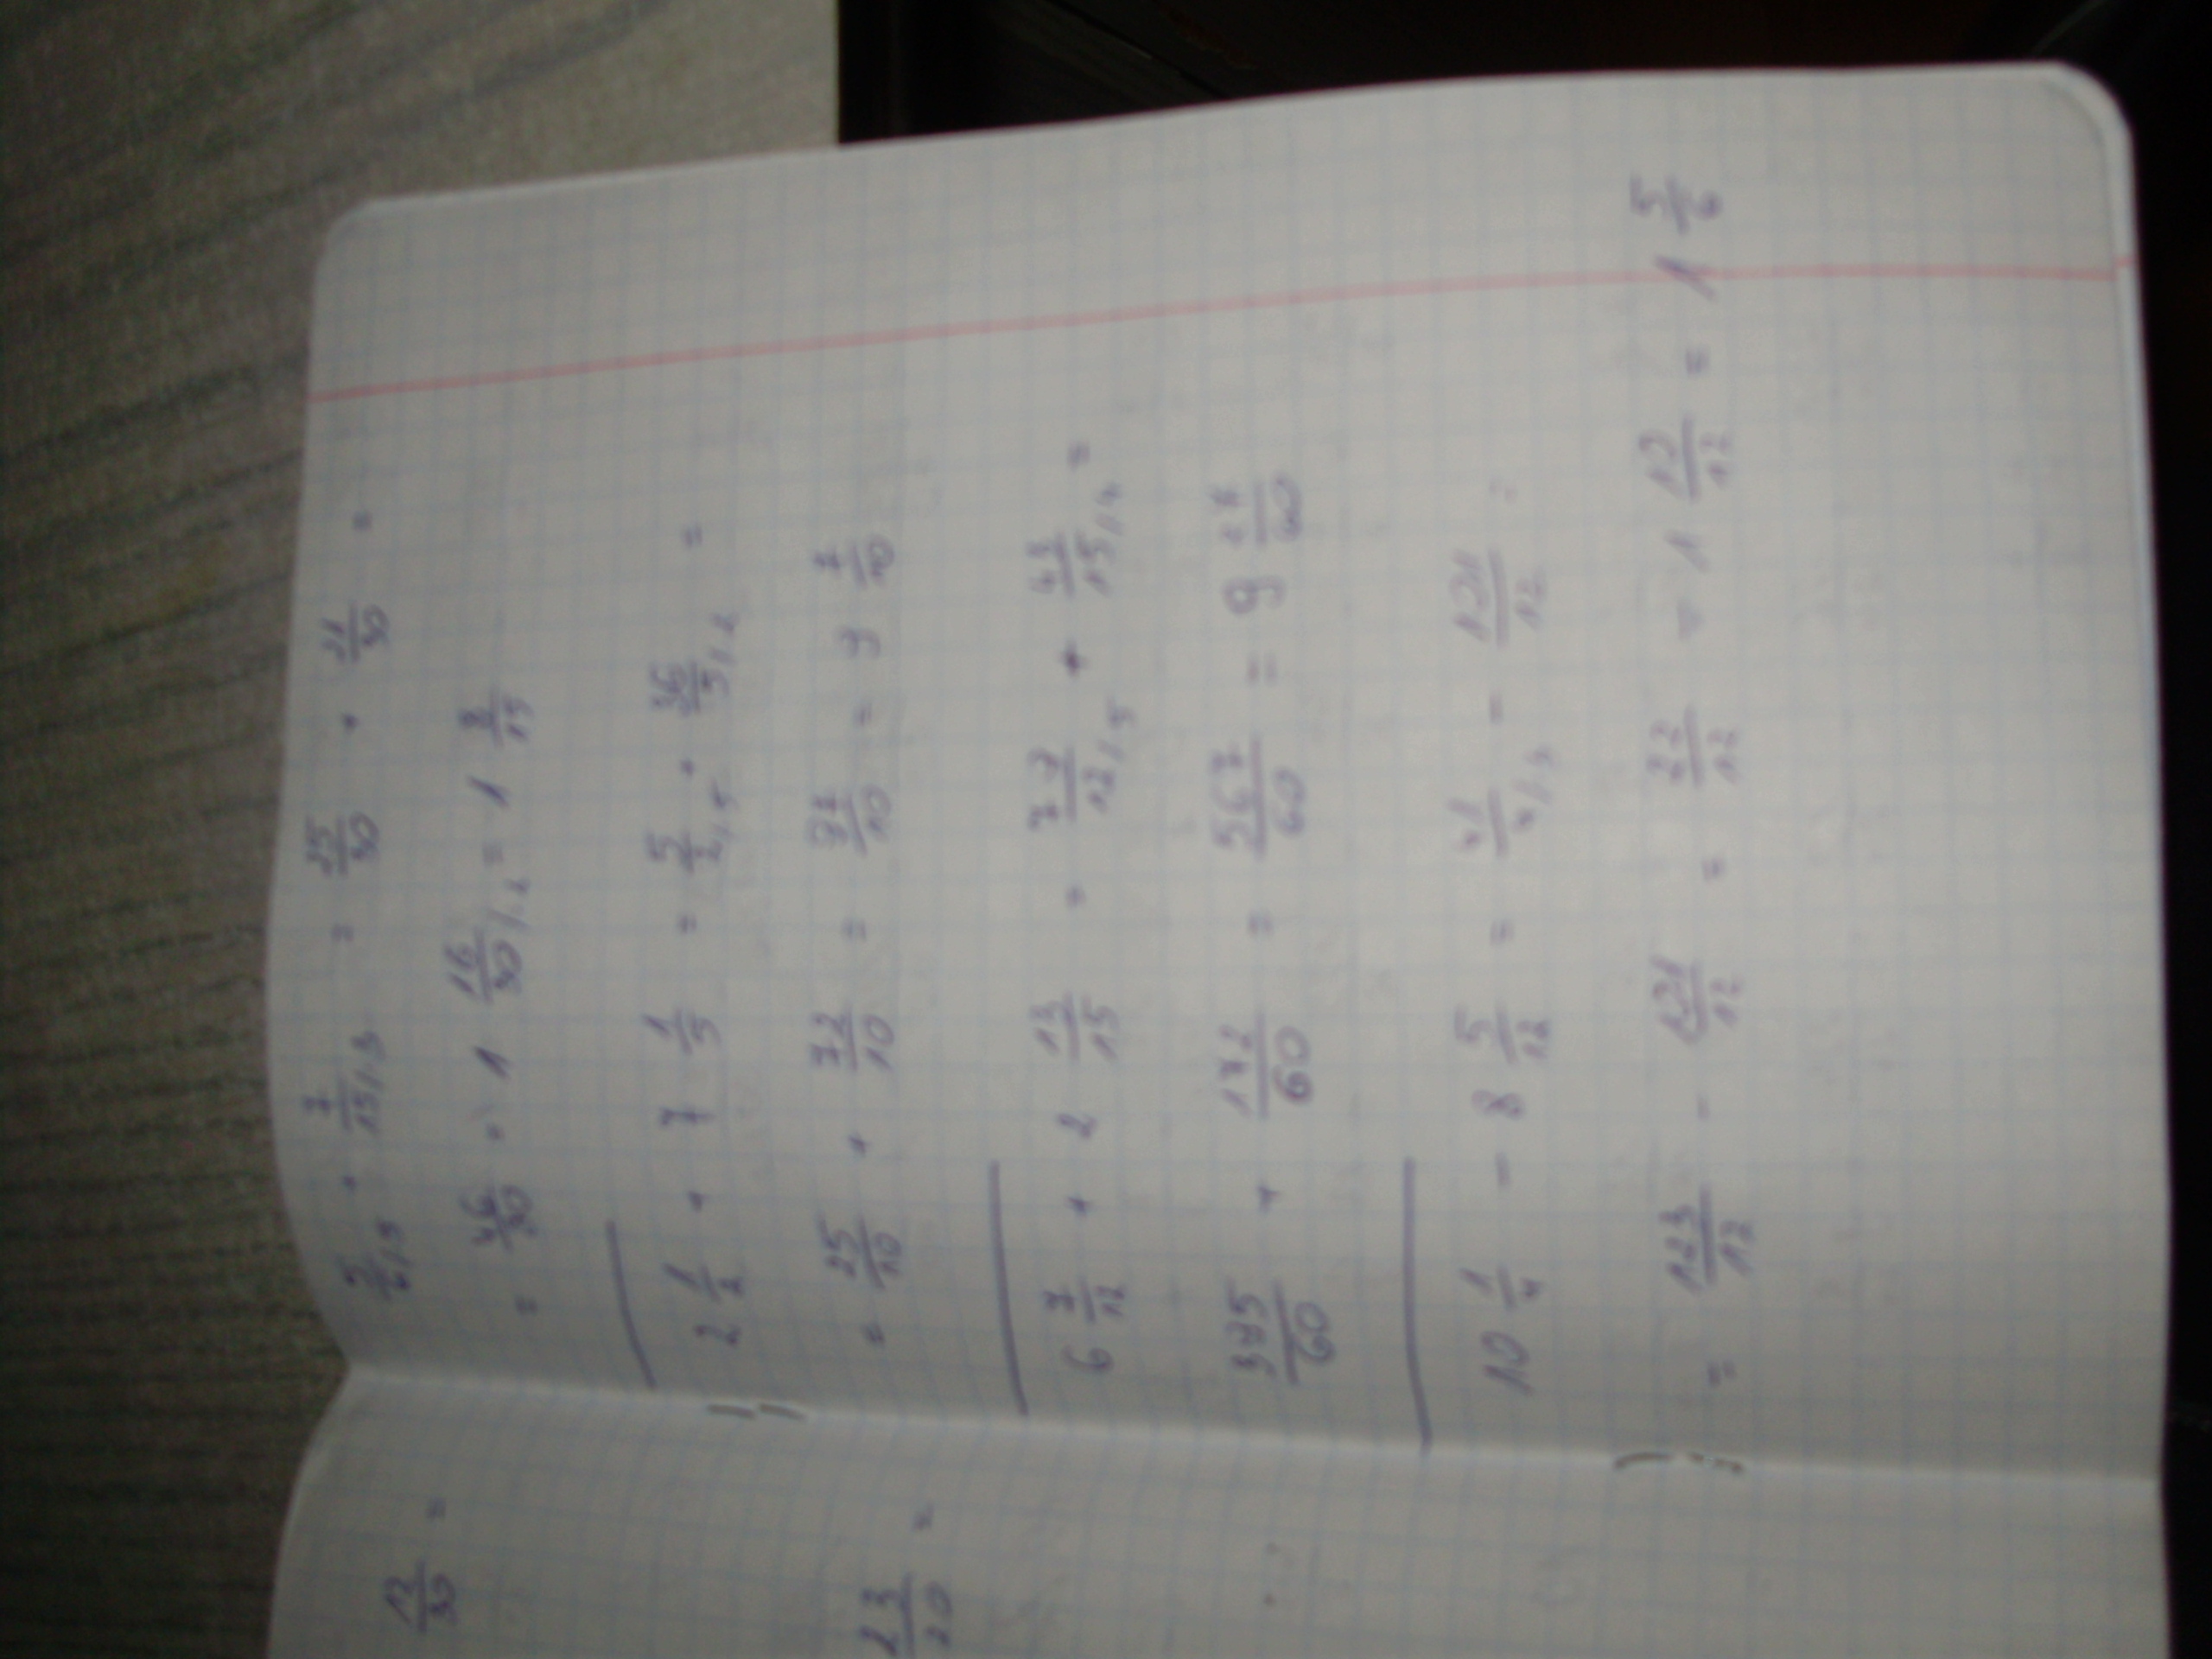 23/20 =
5/6/·5 + 7/15/·3 = 25/30 + 21/30 =
= 46/30 = 1 16/30 /:2 = 1 8/15
2 1/2 + 7 1/5 = 5/2/·5 + 36/5/·2 =
= 25/10 + 72/10 = 97/10 = 9 7/10
6 7/12 + 2 13/15 = 79/12/·5 + 43/15/·4 =
395/60 + 172/60 = 567/60 = 9 27/60
10 1/4 - 8 5/12 = 41/4/·3 - 101/12 =
= 123/12 - 101/12 = 22/12 = 1 10/12 = 1 5/6